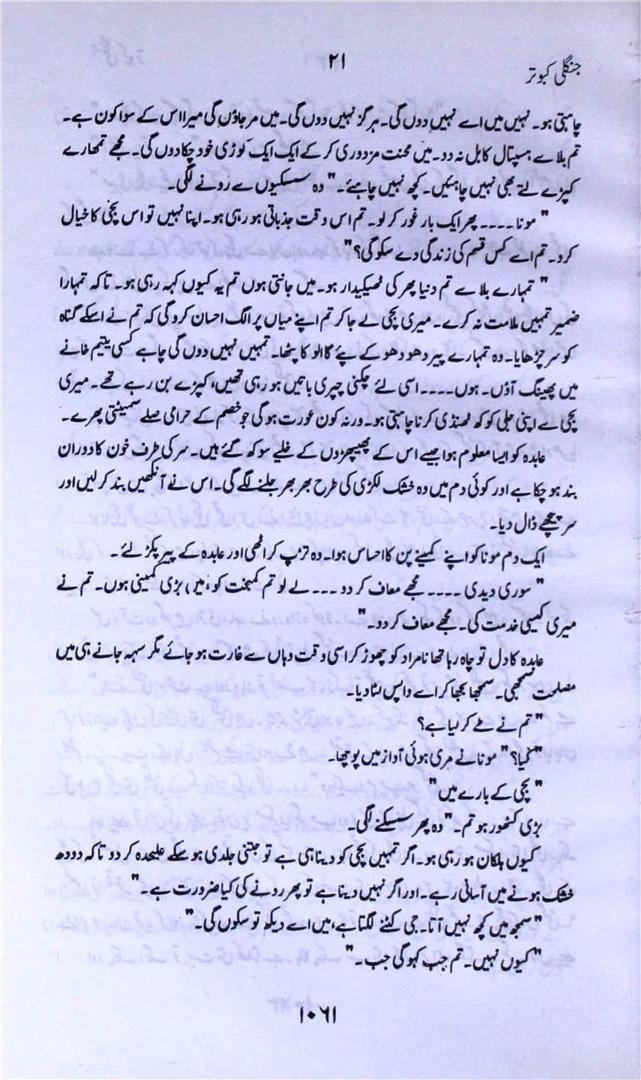 جنگلی کبوتر
۲۱
چاہتی ہو۔ نہیں میں اسے نہیں دوں گی۔ ہرگز نہیں دوں گی۔ میں مر جاؤں گی میرا اس کے سوا کون ہے۔
تم بلا سے ہسپتال کا بل نہ دو۔ میں محنت مزدوری کر کے ایک ایک کوڑی خود چکا دوں گی۔ مجھے تمہارے
کپڑے لتے بھی نہیں چاہئیں۔ کچھ نہیں چاہئے۔" وہ سسکیوں سے رونے لگی۔
" مونا ۔۔۔۔ پھر ایک بار غور کر لو۔ تم اس وقت جذباتی ہو رہی ہو۔ اپنا نہیں تو اس بچی کا خیال
کرو۔ تم اسے کس قسم کی زندگی دے سکو گی؟"
" تمہارے بلا سے تم دنیا بھر کی ٹھیکیدار ہو۔ میں جانتی ہوں تم یہ کیوں کہہ رہی ہو۔ تاکہ تمہارا
ضمیر تمہیں ملامت نہ کرے۔ میری بچی لے جا کر تم اپنے میاں پر الگ احسان کرو گی کہ تم نے اسکے گناہ
کو سر چڑھایا۔ وہ تمہارے پیر دھو دھو کے پئے گا الو کا پٹھا۔ تمہیں نہیں دوں گی چاہے کسی یتیم خانے
میں پھینک آؤں۔ ہوں ۔۔۔۔ اسی لئے چکنی چپری باتیں ہو رہی تھیں، کپڑے بن رہے تھے۔ میری
بچی سے اپنی جلی کوکھ ٹھنڈی کرنا چاہتی ہو۔ ورنہ کون عورت ہوگی جو خصم کے حرامی جھلے سمیٹتی پھرے۔
عابدہ کو ایسا معلوم ہوا جیسے اس کے پھیپھڑوں کے خلیے سوکھ گئے ہیں۔ سر کی طرف خون کا دوران
بند ہو چکا ہے اور کوئی دم میں وہ خشک لکڑی کی طرح بھر بھر جلنے لگے گی۔ اس نے آنکھیں بند کر لیں اور
سر پیچھے ڈال دیا۔
ایک دم مونا کو اپنے کمینے پن کا احساس ہوا۔ وہ تڑپ کر اٹھی اور عابدہ کے پیر پکڑ لئے۔
" سوری دیدی ۔۔۔۔ مجھے معاف کر دو ۔۔۔ لے لو تم کمبخت کو، میں بڑی کمینی ہوں۔ تم نے
میری کیسی خدمت کی۔ مجھے معاف کر دو۔"
عابدہ کا دل تو چاہ رہا تھا نامراد کو چھوڑ کر اسی وقت وہاں سے غارت ہو جائے مگر سہہ جانے ہی میں
مصلحت سمجھی۔ سمجھا بجھا کر اسے واپس لٹا دیا۔
" تم نے طے کر لیا ہے؟
" کیا؟ " مونا نے مری ہوئی آواز میں پوچھا۔
" بچی کے بارے میں "
بڑی کٹھور ہو تم۔" وہ پھر سسکنے لگی۔
کیوں ہلکان ہو رہی ہو۔ اگر تمہیں بچی کو دینا ہی ہے تو جتنی جلدی ہو سکے علیحدہ کر دو تاکہ دودھ
خشک ہونے میں آسانی رہے۔ اور اگر نہیں دینا ہے تو پھر رونے کی کیا ضرورت ہے۔"
" سمجھ میں کچھ نہیں آتا۔ جی کٹنے لگتا ہے، میں اسے دیکھ تو سکوں گی۔"
" کیوں نہیں۔ تم جب کہو گی جب۔"
۱۰۶۱